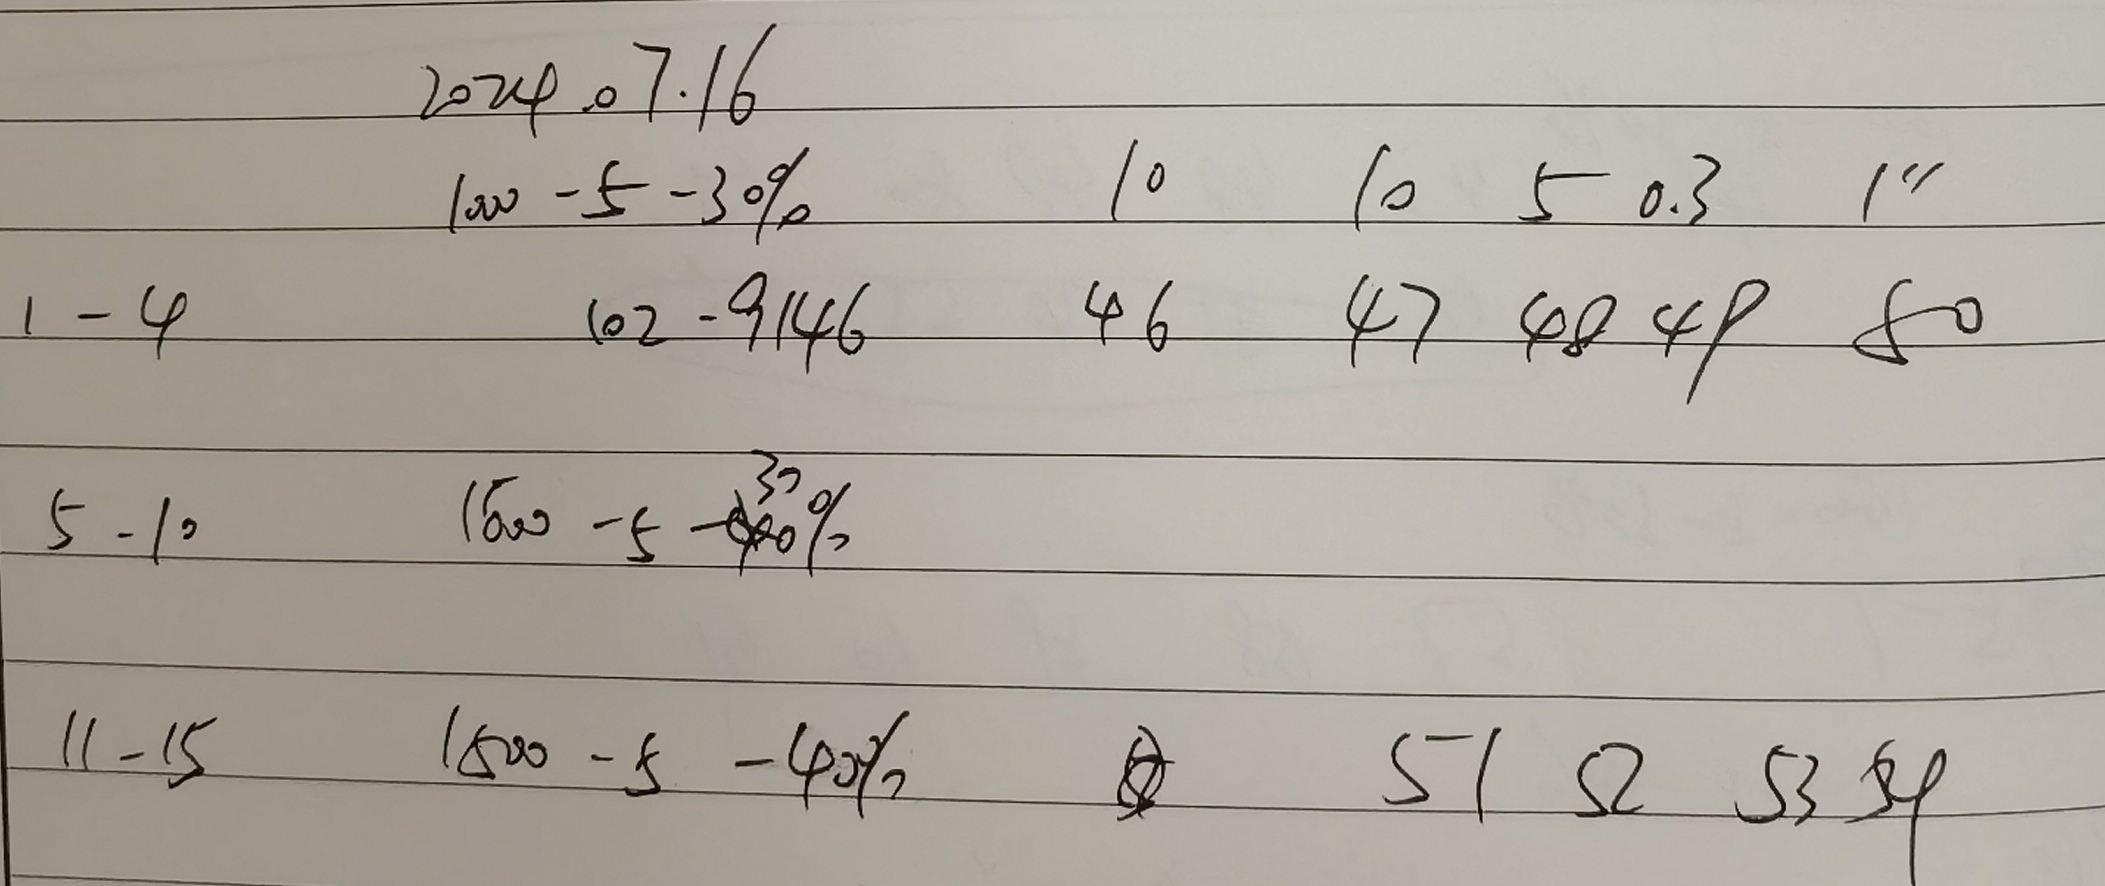 2024.07.16
1000 -5 -30% 10 10 5 0.3 1"
1-4 102-9146 46 47 48 49 50
5-10 1500 -5 -30%
11-15 1500 -5 -40% 51 52 53 54